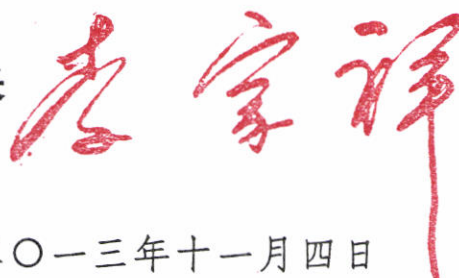 李家祥
〇一三年十一月四日